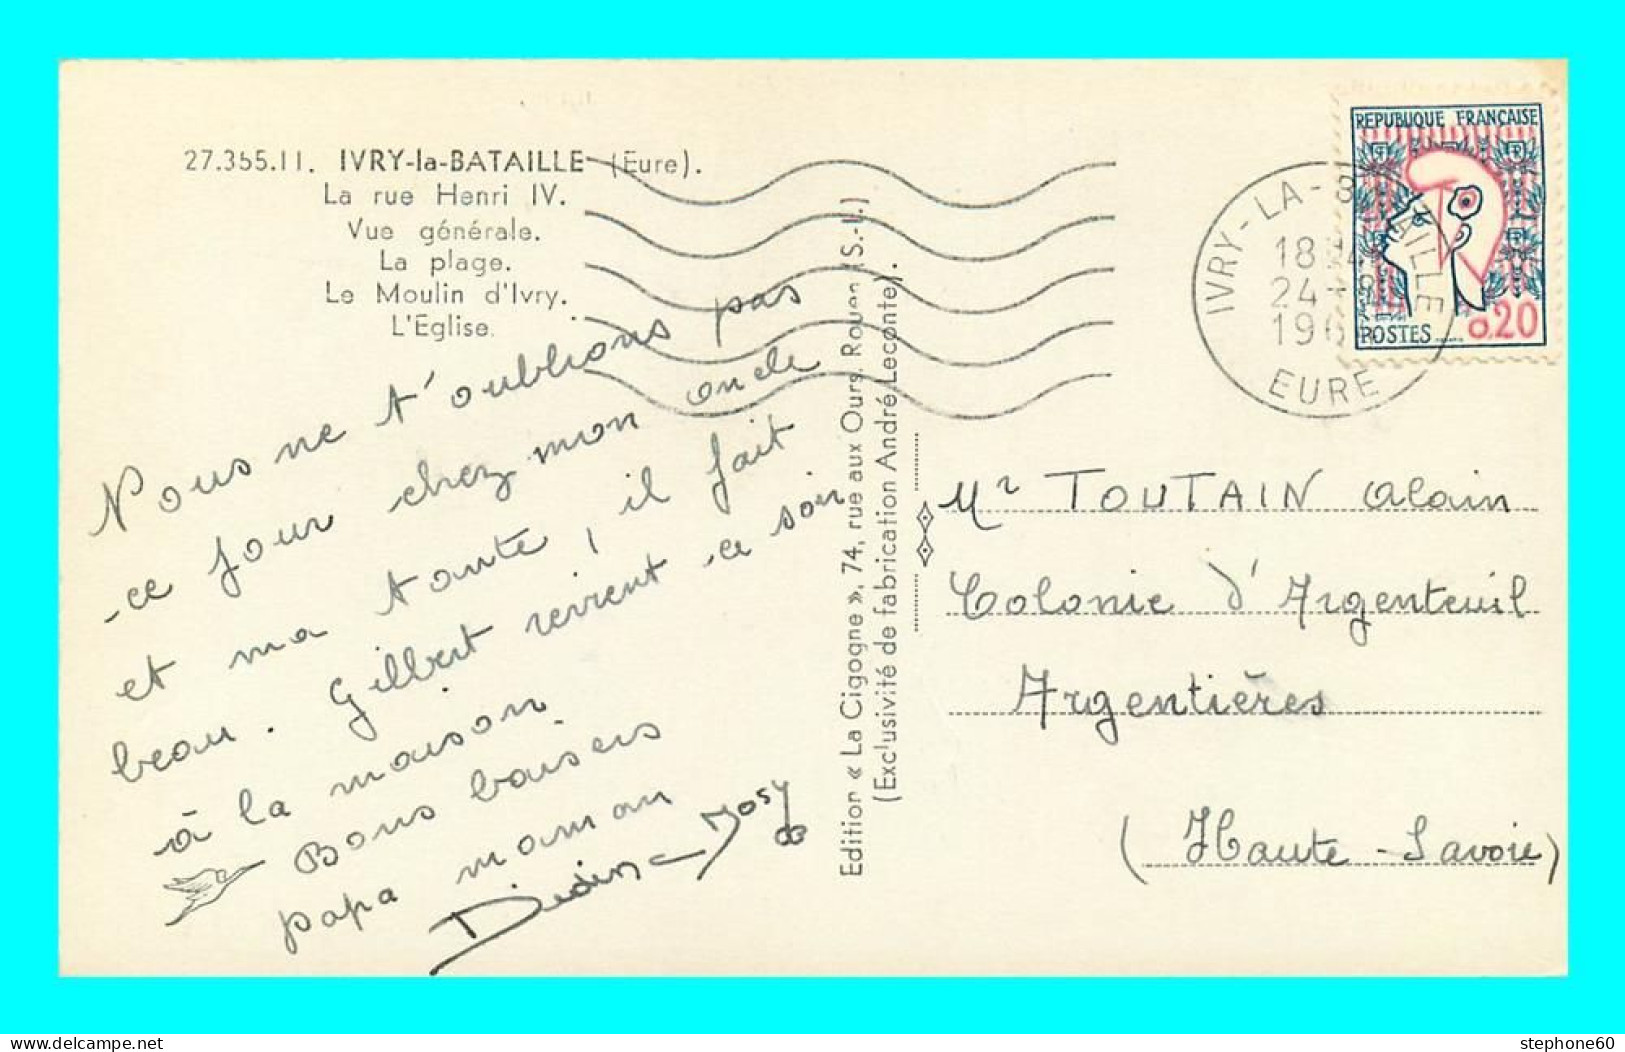 27.355.11. IVRY-la-BATAILLE (Eure).
La rue Henri IV.
Vue générale.
La plage.
Le Moulin d'Ivry.
L'Eglise.
Nous ne t'oublions pas
ce jour chez mon oncle
et ma tante, il fait
beau. Gilbert revient ce soir
à la maison
Bons baisers
papa maman
Josy
Edition « La Cigogne », 74, rue aux Ours, Rouen (S.-I.)
(Exclusivité de fabrication André Leconte).
REPUBLIQUE FRANÇAISE
POSTES 0.20
IVRY-LA-BATAILLE
18
24
196
EURE
Mr TOUTAIN Alain
Colonie d'Argenteuil
Argentières
(Haute-Savoie)
delcampe.net
stephone60